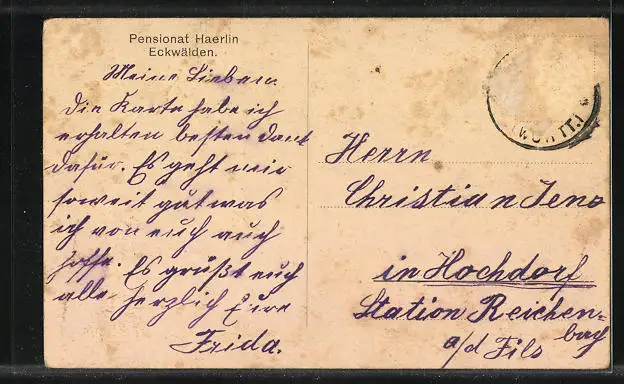 Pensionat Haerlin
Eckwälden.
Meine Lieben
die Karte habe ich
erhalten besten dank
dafür. Es geht mir
soweit gut was
ich von euch auch
hoffe. Es grüßt euch
alle herzlich Eure
Frida.
(WÜRTT.)
Herrn
Christian Jens
in Hochdorf
Station Reichen=
bach
a/d Fils